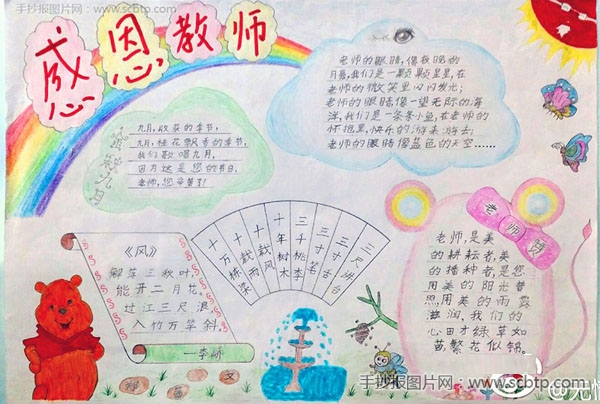 手抄报图片网：www.scbtp.com
感恩教师
老师的眼睛，像皎皎的
月亮，我们是一颗颗星星，在
老师的微笑里闪闪发光；
老师的眼睛像一望无际的海
洋，我们是一条条小鱼，在老师的
怀抱里，快乐的游来游去；
老师的眼睛像蓝色的天空……
九月，收获的季节，
九月，桂花飘香的季节，
我们歌唱九月，
因为这是您的节日，
老师，您辛苦了！
十万栋梁
十载雨风
十年树木
三千桃李
三寸笔
三寸舌
三尺讲台
《风》
解落三秋叶，
能开二月花。
过江三尺浪，
入竹万竿斜。
—李峤
老师颂
老师，是美
的耕耘者，美
的播种者，是您
用美的阳光普
照，用美的雨露
滋润，我们的
心田才绿草如
茵，繁花似锦
手抄报图片网：www.scbtp.com